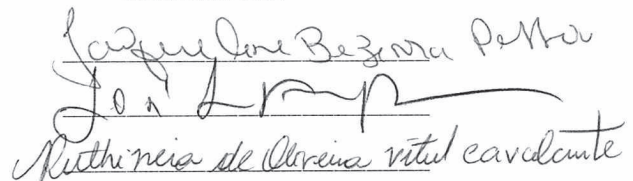 Jacqueline Bezerra Pessoa
José
Ruthineia de Oliveira vital cavalcante